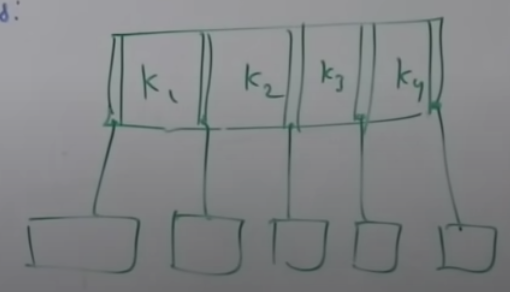 d:
K₁ K₂ K₃ K₄